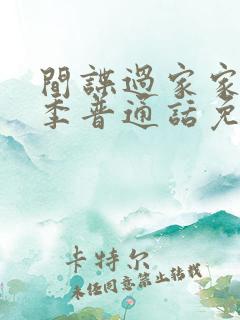 間諜過家家
季普通話免
卡特尔
未经同意禁止转载